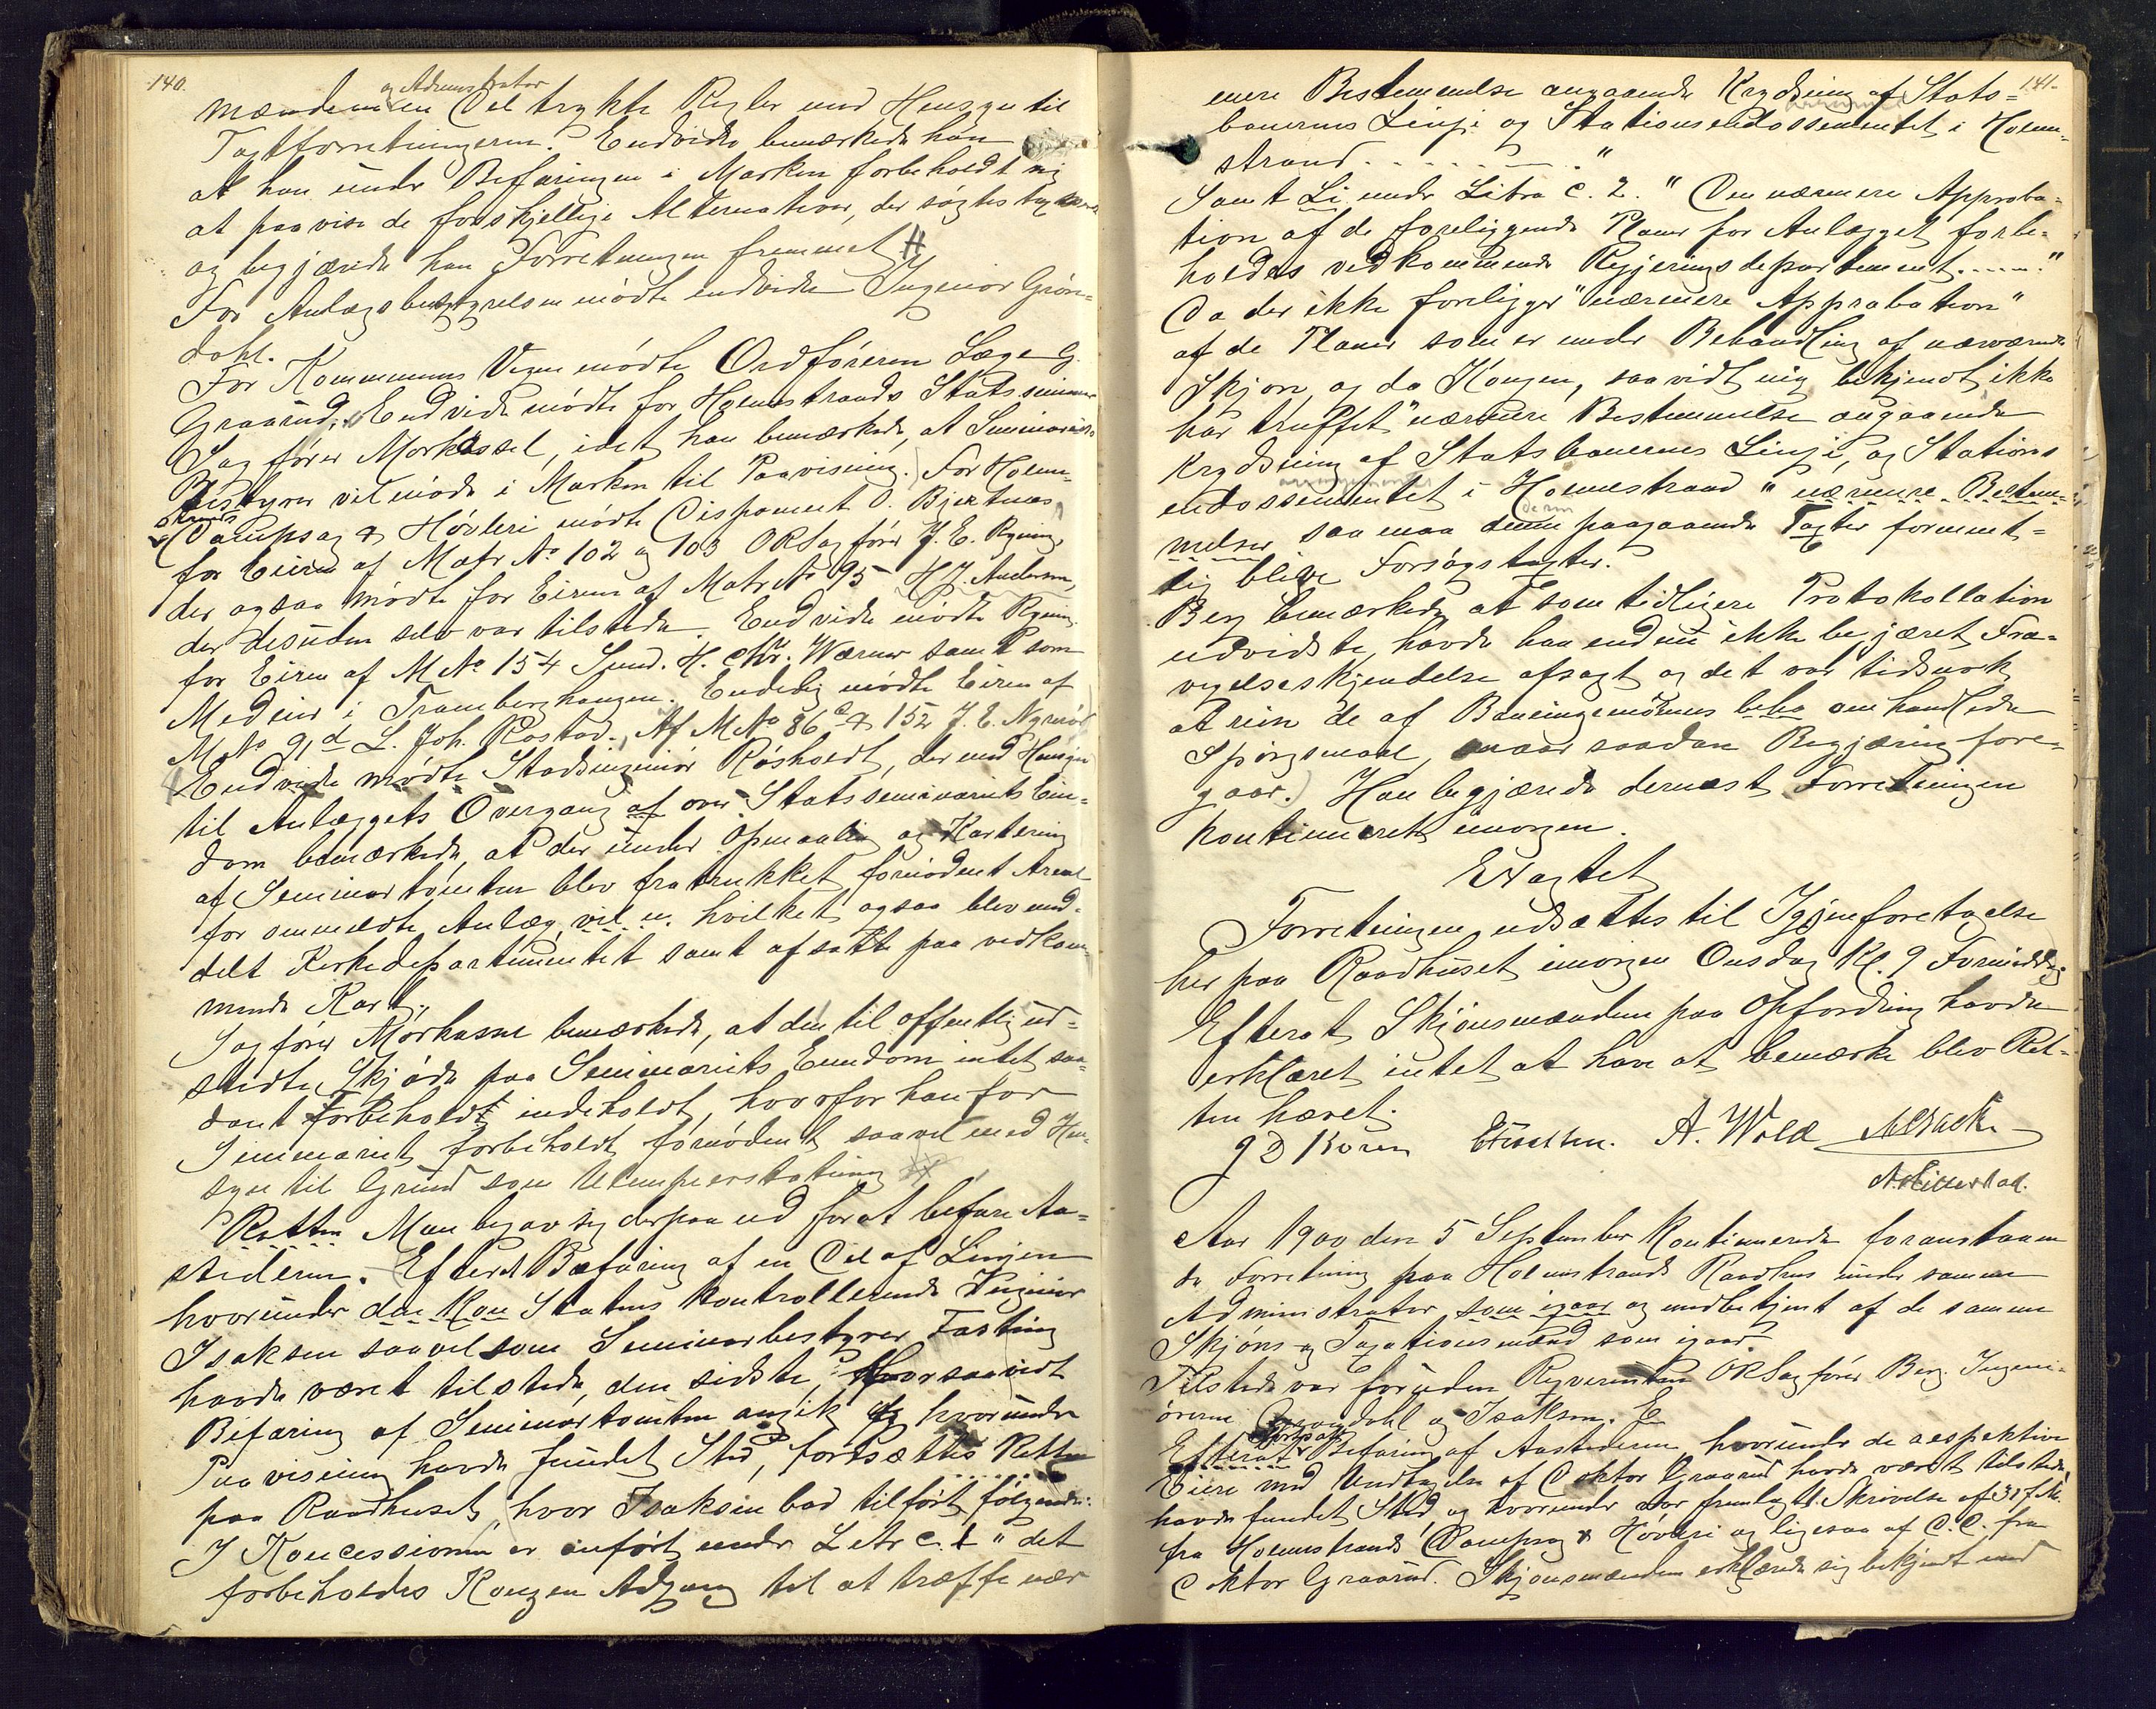 140.
og Administrator
mændene en Del trykte Regler med Hensyn til
Taxtforretningerne. Endvidre bemærkede han
at han under Befaringen i Marken forbeholdt sig
at paavise de forskjellige Alternativer, der søgtes
og begjærede han Forretningen fremmet #
For Anlægsbestyrelsen mødte endvidre Ingeniør Grøn-
dahl.
For Kommunens Vegne mødte Ordføreren Læge G.
Graarud, Endvidre mødte for Holmestrands Statsseminar
Sagfører Morkassel, idet han bemærkede, at Seminariets
Bestyrer vil møde i Marken til Paavisning. For Holme-
strands
Dampsag & Høvleri mødte Disponent O. Bjertnæs,
for Eieren af Matr No 102 og 103 ORSagfører J. E. Ryning,
der ogsaa mødte for Eieren af Matr No 95 H. J. Andersen,
der desuden selv var tilstede. Endvidre mødte Ryning
for Eieren af M No 154 Sund. H. Chr. Wærner samt som
Medeier i Tramberghaugen. Endelig mødte Eieren af
M No 91d L. Joh. Rostad. Af M No 86a & 152 J. E. Nyrerød
Endvidre mødte Stadsingeniør Røsholdt, der med Hensyn
til Anlæggets Overgang af over Statsseminariets Eien-
dom bemærkede, at der under Opmaaling og Kartering
af Seminartomten blev fratrukket fornødent Areal
for ommeldte Anlæg, vil n. hvilket ogsaa blev med-
delt Kirkedepartementet samt afsatte paa vedkom-
mende Kart.
Sagfører Morkassel bemærkede, at det til offentlig ud-
stedte Skjøde paa Seminariets Eiendom intet saa-
dant Forbeholdt indeholdt, hvorfor han for
Seminariet forbeholdt fornødent saavel med Hen-
syn til Grund som Ulempeerstatning #
Retten Man begav sig derpaa ud for at befare Aa-
stederne. Efter Befaring af en Del af Linjen
hvorunder den Kon Statens kontrollerende Ingeniør
Isaksen saavel som Seminarbestyrer Fasting
havde været tilstede, den sidste, forsaavidt
Befaring af Seminartomten angik og hvorunder
Paavisning havde fundet Sted, fortsættes Retten
paa Raadhuset, hvor Isaksen bad tilført følgende:
I Koncessionen er anført under Litr c. 1 " det
forbeholdes Kongen Adgang til at træffe nær
141.
mere Bestemmelse angaaende Krydsning af Stats-
banernes Linje og Stationsendossementet i Holme-
strand . . . . . . . . "
Samt Li under Litra c. 2. " Den nærmere Approba-
tion af de foreliggende Planer for Anlægget forbe-
holdes vedkommende Regjeringsdepartement ....."
Da der ikke foreligger "nærmere Approbation"
af de Planer som er under Behandling af nærværende
Skjøn, og da Kongen, saavidt mig bekjendt ikke
har truffet "nærmere Bestemmelse angaaende
Krydsning af Statsbanernes Linje, og Stations
endossementet i Holmestrand " nærmere Bestem-
melser saa maa denne paagaaende Taxter forment-
lig blive Forsøgstaxter.
Berg bemærkede at som tidligere Protokollation
udviste, havde han endnu ikke begjæret Fra-
vigelseskjendelse afsagt og det var tidsnok
at reise de af Baneingeniørens beho omhandlede
Spørgsmaal, naar saadan Begjæring fore-
gaar.) Han begjærede dernæst Forretningen
kontinueret imorgen.
Eragtet
Forretningen udsættes til Igjenforetagelse
her paa Raadhuset imorgen Onsdag Kl. 9 Formiddag
Efterat Skjønsmændene paa Opfordring havde
erklæret intet at have at bemærke blev Ret-
ten hævet.
J D Koren A. Wold
Aar 1900 den 5 September kontinuerede foranstaaen
de Forretning paa Holmestrands Raadhus under samme
Administrator som igaar og medbetjent af de samme
Skjøns og Taxationsmænd som igaar.
Tilstede var foruden Rekvirenten ORSagfører Berg Ingeni-
ørerne Grøndahl og Isaksen. E
fortsat
Efterat Befaring af Aastederne, hvorunder de respektive
Eiere med Undtagelse af Doktor Graarud havde været tilstede,
havde fundet Sted, og hvorunder var fremlagt Skrivelse af 31 f. M.
fra Holmestrands Dampsag & Høvleri og ligesaa af D. D. fra
Doktor Graarud. Skjønsmændene erklærede sig bekjendt med